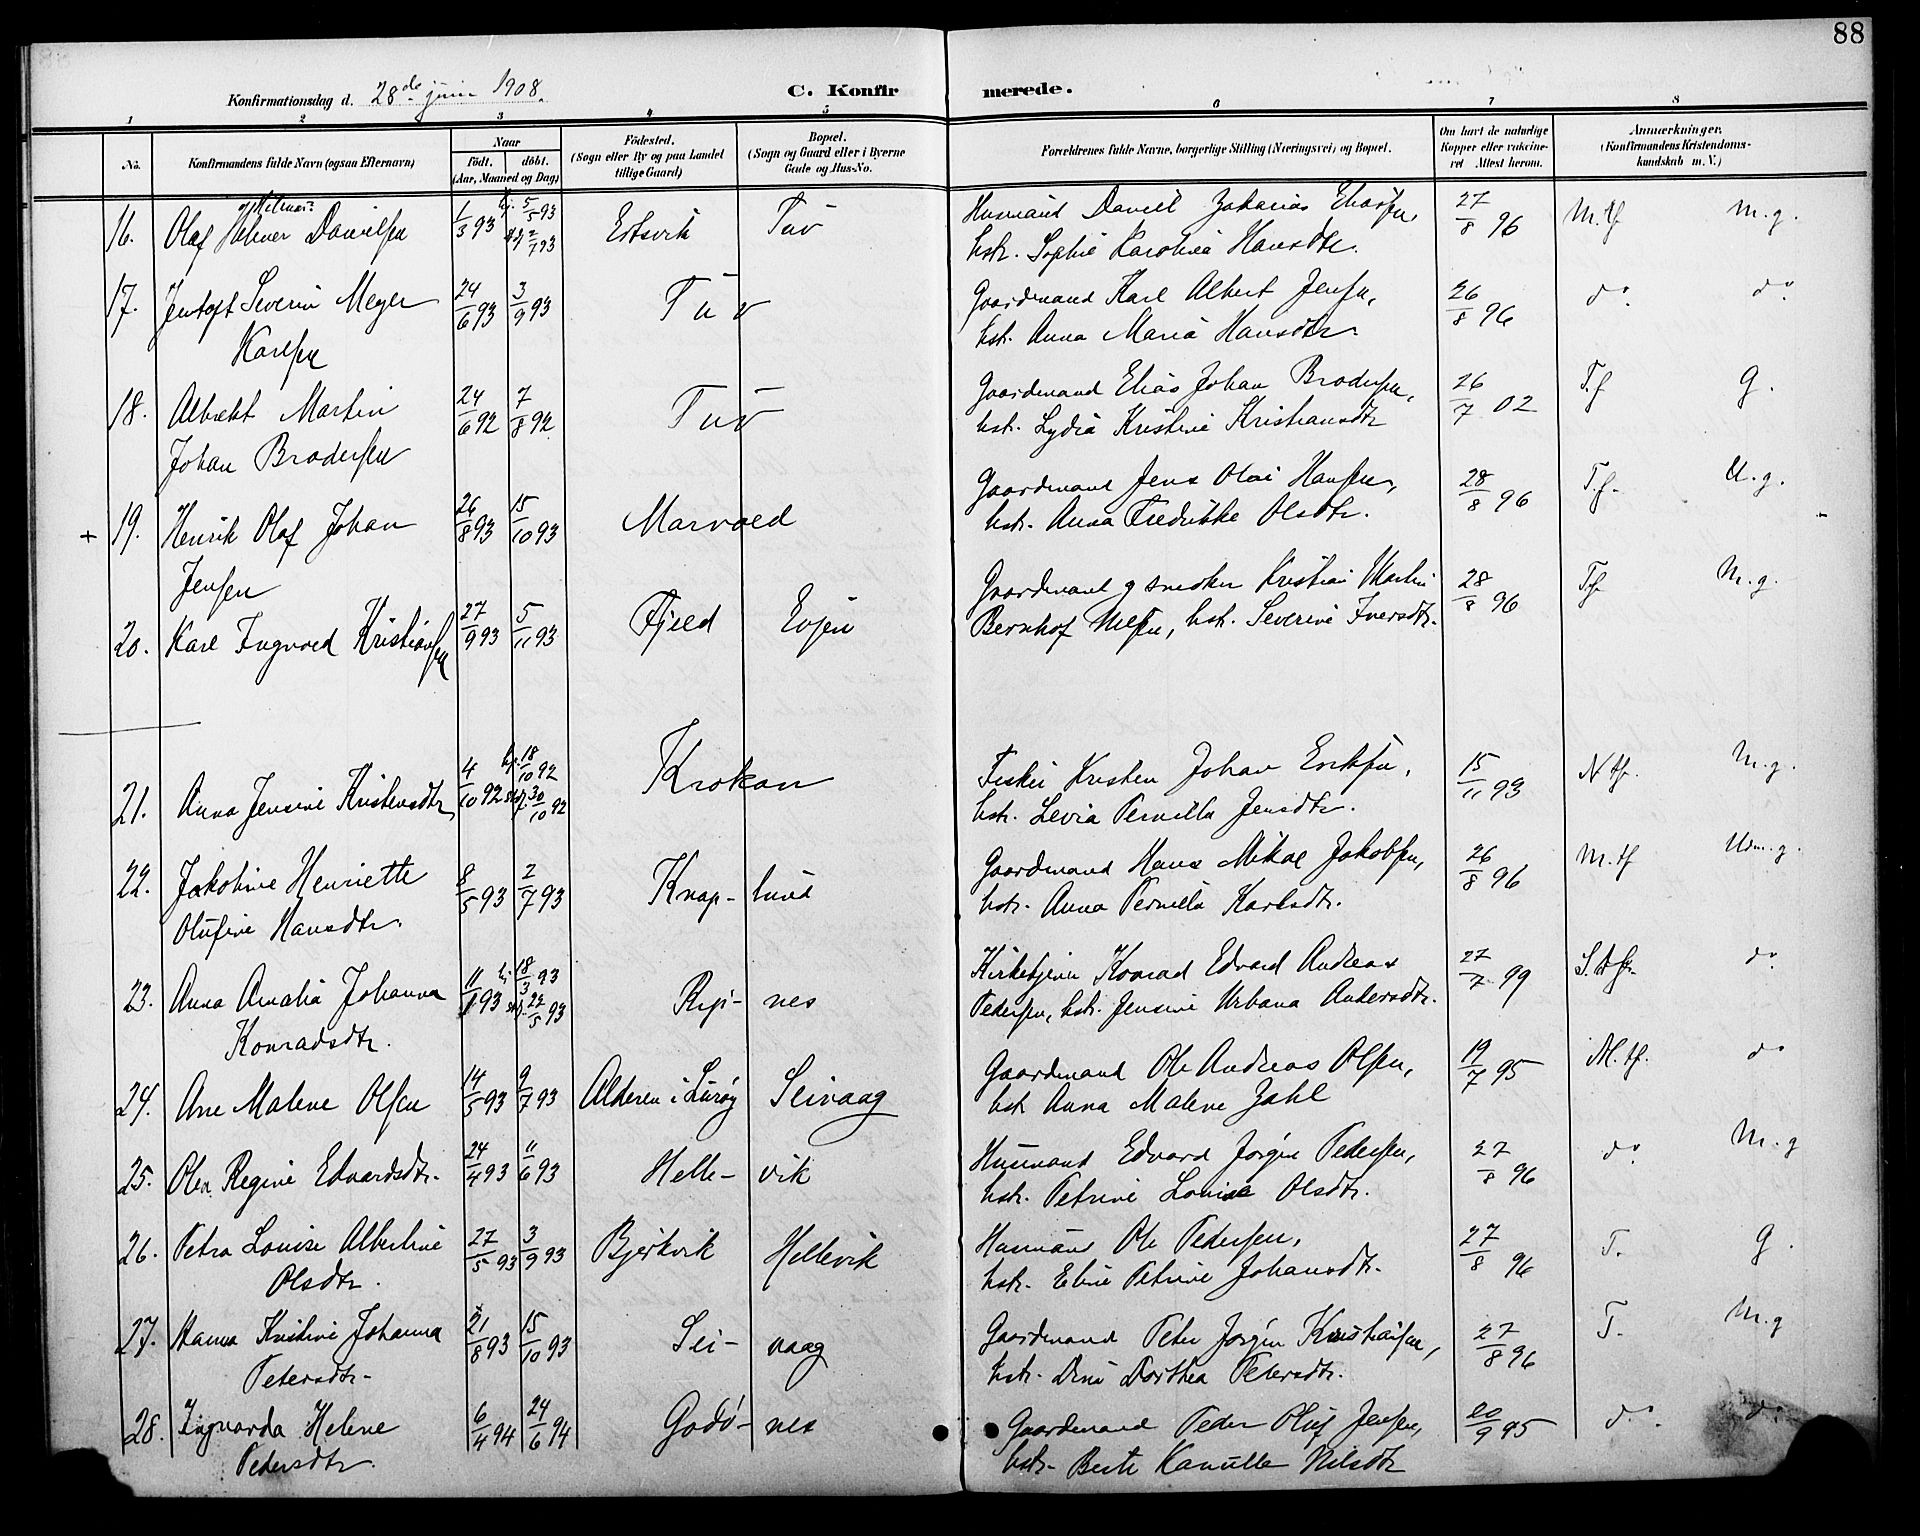 88
Konfirmationsdag d. 28de juni 1908.
C. Konfirmerede.
1 2 3 4 5 6 7 8
No.
Konfirmandens fulde Navn (ogsaa Efternavn)
Naar
født. døbt.
(Aar, Maaned og Dag)
Fødested.
(Sogn eller By og paa Landet
tillige Gaard)
Bopæl.
(Sogn og Gaard eller i Byerne
Gade og Hus-No.
Forældrenes fulde Navne, borgerlige Stilling (Næringsvei) og Bopæl.
Om havt de naturlige
Kopper eller vakcine-
ret Attest herom.
Anmærkninger.
(Konfirmandens Kristendoms-
kundskab m. V.)
16. Olaf Danielsen 1/3 93 hj. 5/5 93 2/7 93 Estvik Tuv Husmand Daniel Zakarias Eliassen, 27/8 96 M.tf M.g.
hstr. Sophie Karoline Hansdtr.
17. Jentoft Severin Meyer 24/6 93 3/9 93 Tuv Gaardmand Karl Albert Jensen, 26/8 96 do. do.
Karlsen hstr. Anna Maria Hansdtr.
18. Albrekt Martin 24/6 92 7/8 92 Tuv Gaardmand Elias Johan Brodersen, 26/7 02 T.f G.
Johan Brodersen hstr. Lydia Kristine Kristiansdtr
+ 19. Henrik Olaf Johan 26/8 93 15/10 93 Marvold Gaardmand Jens Olai Hansen, 28/8 96 T.f. M.g.
Jensen hstr. Anna Fredrikke Olsdtr.
20. Karl Ingvald Kristiansen 27/9 93 5/11 93 Fjeld Evjen Gaardmand og snedker Kristian Martin 28/8 96 T.f M.g.
Bernhof Nilsen, hstr. Severine Iversdtr.
21. Anna Jensine Kristensdtr 4/10 92 hj. 18/10 92 stf. 30/10 92 Krokan Fisker Kristen Johan Eriksen, 15/11 93 N.tf. M.g.
hstr. Levia Pernilla Jensdtr.
22. Jakobine Henriette 8/5 93 2/7 93 Knap-lund Gaardmand Hans Mikal Jakobsen, 26/8 96 M.tf Udm.g.
Olufine Hansdtr. hstr. Anna Pernilla Karlsdtr.
23. Anna Amalia Johanna 11/1 93 hj. 18/3 93 stf. 22/5 93 Rip-nes Kirketjener Konrad Edvard Andreas 27/7 99 S.tfr. do.
Konradsdtr. Pedersen, hstr. Jensine Urbana Andersdtr.
24. Ane Malene Olsen 14/5 93 9/7 93 Alderen i Lurøy Seivaag Gaardmand Ole Andreas Olsen, 19/7 95 M.tf. do
hstr Anna Malene Zahl
25. Olea Regine Edvardsdtr. 24/4 93 11/6 93 Helle-vik Husmand Edvard Jørgen Pedersen, 27/8 96 do. M.g
hstr. Petrine Louise Olsdtr.
26. Petra Louise Albertine 27/5 93 3/9 93 Bjerkvik Hellevik Husmand Ole Pedersen, 27/8 96 T. G.
Olsdtr. hstr. Eline Petrine Johansdtr.
27. Hanna Kristine Johanna 21/8 93 15/10 93 Sei-vaag Gaardmand Peter Jørgen Kristiansen, 27/8 96 T. M.g
Petersdtr. hstr. Dina Dorthea Petersdtr.
28. Ingvarda Helene 6/4 94 24/6 94 Godø-nes Gaardmand Peder Oluf Jensen, 20/9 95 do. do.
Pedersdtr. hstr. Berit Kanutte Nilsdtr